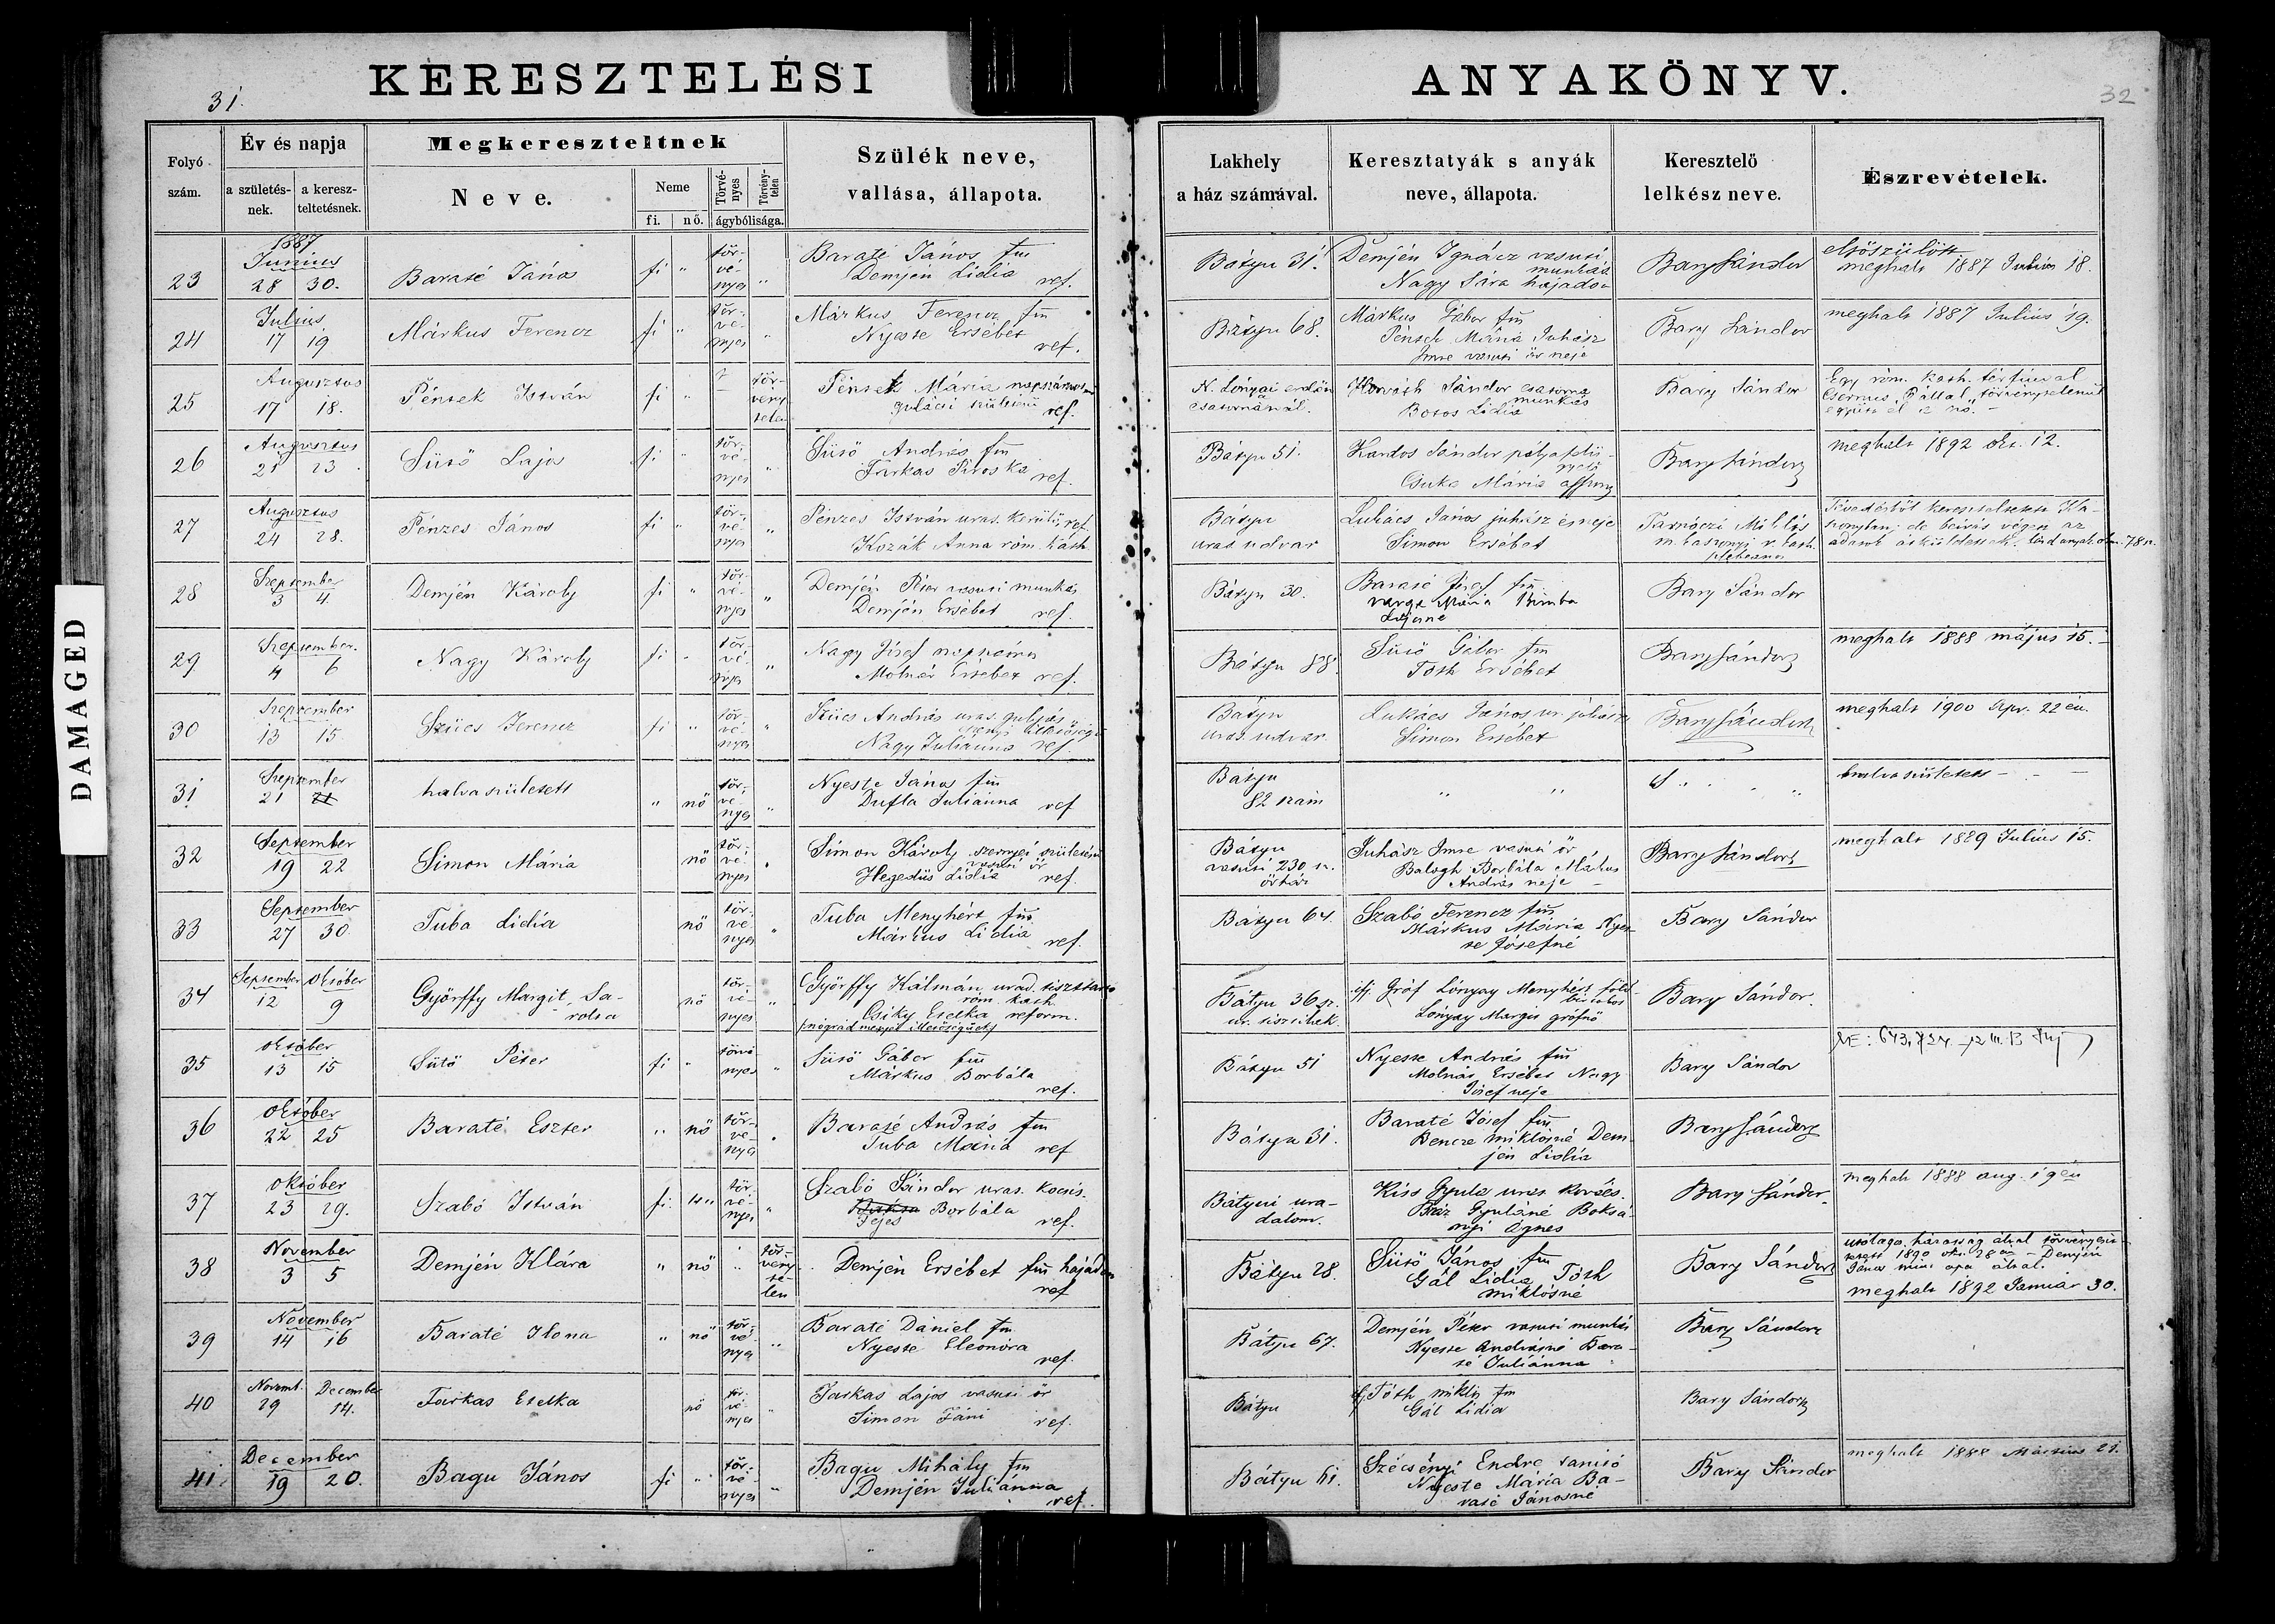 KERESZTELÉSI
ANYAKÖNYV.
31.
32
DAMAGED
Folyó szám.
Év és napja
a születés-nek.
a keresz-teltetésnek.
Megkereszteltnek
Neve.
Neme
fi.
nő.
Törvé-nyes
Törvény-telen
ágybólisága.
Szülék neve,
vallása, állapota.
Lakhely
a ház számával.
Keresztatyák s anyák
neve, állapota.
Keresztelő
lelkész neve.
Észrevételek.
23
1887
Junius
28 30.
Baraté János
fi "
tör-vé-nyes "
Baraté János fm
Demjén Lidia ref.
Bátyu 31.
Demjén Ignácz vasuti
munkás
Nagy Sára hajadon
Bary Sándor
elsőszülött
meghalt 1887 Julius 18.
24
Julius
17 19
Márkus Ferencz
fi "
tör-vé-nyes "
Márkus Ferencz fm
Nyeste Ersébet ref.
Bátyu 68.
Márkus Gábor fm
Péntek Mária Juhász
Imre vasuti őr neje
Bary Sándor
meghalt 1887 Julius 19.
25
Augusztus
17 18.
Péntek István
fi "
tör-vény-telen
Péntek Mária napszámos
gulácsi születésű ref.
N. Lónyai erdőn
csatornánál.
Horváth Sándor csatorna
munkás
Botos Lidia
Bary Sándor
Egy róm. kath. férfiuval
együtt él a nő. -
26
Augusztus
21 23
Sütő Lajos
fi "
tör-vé-nyes "
Sütő András fm
Farkas Piroska ref.
Bátyu 51.
Kardos Sándor
Csuka Mária
Bary Sándor
meghalt 1892 okt. 12.
27
Augusztus
24 28.
Pénzes János
fi "
tör-vé-nyes "
Pénzes István uras. kerülő, ref.
Kozák Anna róm. kath.
Bátyu
uras. udvar
Lukács János juhász és neje
Simon Ersébet
Tarnóczi Miklós
28
Szeptember
3 4.
Demjén Károly
fi "
tör-vé-nyes "
Demjén Péter vasuti munkás
Demjén Ersébet ref.
Bátyu 30.
Baraté Jósef fm
Varga Mária Bimba
Lajosné
Bary Sándor
29
Szeptember.
4 6
Nagy Károly
fi "
tör-vé-nyes "
Nagy Jósef napszámos
Molnár Ersébet ref.
Bátyu 88.
Sütő Gábor fm
Tóth Ersébet
Bary Sándor
meghalt 1888 május 15. -
30
Szeptember
13 15
Szücs Ferencz
fi "
tör-vé-nyes "
Szücs András uras. gulyás
Nagy Julianna ref.
Bátyu
uras. udvar
Lukács János ur. juhász
Simon Ersébet
Bary Sándor
meghalt 1900 Apr. 22 én.
31
Szeptember
21 21
halva született
" nő
tör-vé-nyes "
Nyeste János fm
Dufla Julianna ref
Bátyu
82 szám
" "
halva született - - -
32
September
19 22
Simon Mária
nő
tör-vé-nyes "
Simon Károly szernyei születésű
vasuti őr
Hegedüs Lidia ref.
Bátyu
vasuti 230 sz.
őrház
Juhász Imre vasuti őr
Balogh Borbála Márkus
András neje -
Bary Sándor
meghalt 1889 Julius 15.
33
September
27 30.
Tuba Lidia
nő
tör-vé-nyes "
Tuba Menyhért fm
Márkus Lidia ref.
Bátyu 64.
Szabó Ferencz fm
Márkus Mária Nyes-
te Jósefné
Bary Sándor
34
September október
12 9
Györffy Margit Sa-
rolta
nő
tör-vé-nyes "
Györffy Kálmán urad. tiszttartó
róm. kath.
Csiky Etelka reform.
Bátyu 36 sz.
ur. tisztilak.
ifj. Gróf Lónyay Menyhért föld-
birtokos
Lónyay Margit grófnő
Bary Sándor.
35
október
13 15
Sütő Péter
fi "
törvényes "
Sütő Gábor fm
Márkus Borbála
ref.
Bátyu 51
Nyeste András fm
Molnár Ersébet Nagy
Jósef neje
Bary Sándor
36
október
22 25
Baraté Eszter
" nő
tör-vé-nyes "
Baraté András fm
Tuba Mária ref
Bátyu 31.
Baraté Jósef fm
Bencze Miklósné Dem-
jén Lidia
Bary Sándor
37
október
23 29.
Szabó István
fi.
tör-vé-nyes "
Szabó Sándor uras. kocsis.
Borbála
Fejes ref.
Bátyui ura-
dalom.
Kiss Gyula uras. kovács.
Gyuláné Boksá-
nyi Ágnes
Bary Sándor
meghalt 1888 aug. 19 én
38
November
3 5
Demjén Klára
" nő
" tör-vény-te-len
Demjén Ersébet fm hajadon
ref
Bátyu 28.
Sütő János fm
Gál Lidia Tóth
Miklósné
Bary Sándor
utólagos házasság által törvényesít-
tetett 1890 okt. 28 án - Demjén
János mint apa által.
meghalt 1892 Január 30.
39
November
14 16
Baraté Ilona
" nő
tör-vé-nyes "
Baraté Dániel fm
Nyeste Eleonóra
ref.
Bátyu 67.
Demjén Péter vasuti munkás
Nyeste Andrásné Bara-
té Juliánna
Bary Sándor
40
Novemb. December
29 14.
Farkas Etelka
nő
tör-vé-nyes "
Farkas Lajos vasuti őr
Simon Fáni ref.
Bátyu
ifj. Tóth Miklós fm
Gál Lidia
Bary Sándor
41.
December
19 20.
Bagu János
fi "
tör-vé-nyes "
Bagu Mihály fm
Demjén Juliánna
ref.
Bátyu 61.
Szécsényi Endre tanitó
Nyeste Mária Ba-
raté Jánosné
Bary Sándor
meghalt 1888 Március 21.